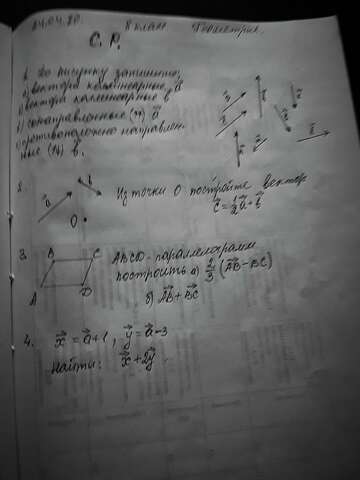 04.04.20. 8 класс Геометрия.
С. Р.
1. По рисунку запишите:
а) вектора коллинеарные a⃗
б) вектора коллинеарные в
в) сонаправленные (↑↑) a⃗
г) противоположно направлен-
ные (↑↓) b⃗.
2. a⃗ b⃗ Из точки О постройте вектор
О c⃗ = 1/2 a⃗ + b⃗
3. B C ABCD - параллелограмм
построить а) 2/3 (AB⃗ - BC⃗)
A D
б) AB⃗ + BC⃗
4. x⃗ = a⃗ + 1, y⃗ = a⃗ - 3
Найти: x⃗ + 2y⃗